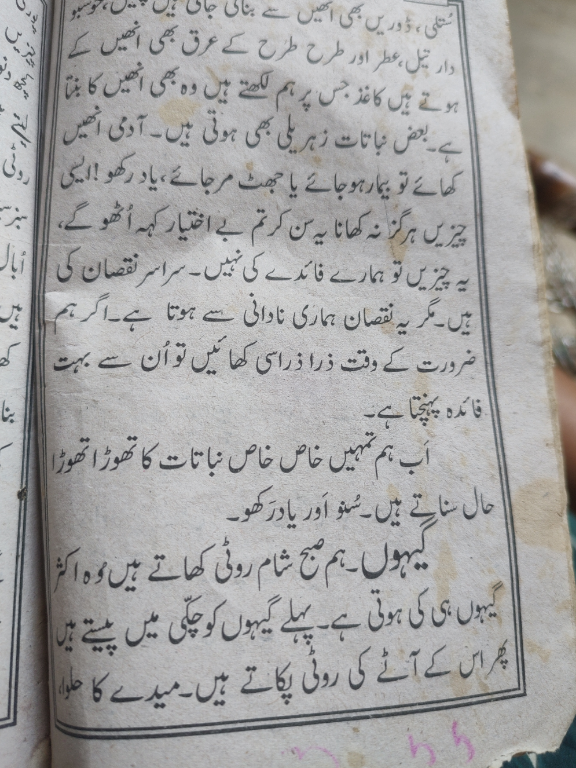 سُتلی، ڈوریں بھی انھیں سے بنائی جاتی ہیں
دار تیل، عطر اور طرح طرح کے عرق بھی انھیں کے
ہوتے ہیں کاغذ جس پر ہم لکھتے ہیں وہ بھی انھیں کا بنتا
ہے۔ بعض نباتات زہریلی بھی ہوتی ہیں۔ آدمی انھیں
کھائے تو بیمار ہو جائے یا جھٹ مر جائے، یاد رکھو! ایسی
چیزیں ہرگز نہ کھانا یہ سن کر تم بے اختیار کہہ اُٹھو گے،
یہ چیزیں تو ہمارے فائدے کی نہیں۔ سراسر نقصان کی
ہیں۔ مگر یہ نقصان ہماری نادانی سے ہوتا ہے۔ اگر ہم
ضرورت کے وقت ذرا ذرا سی کھائیں تو اُن سے بہت
فائدہ پہنچتا ہے۔
اَب ہم تمہیں خاص خاص نباتات کا تھوڑا تھوڑا
حال سناتے ہیں۔ سُنو اَور یاد رَکھو۔
گیہوں۔ ہم صبح شام روٹی کھاتے ہیں وُہ اکثر
گیہوں ہی کی ہوتی ہے۔ پہلے گیہوں کو چکّی میں پیستے ہیں
پھر اس کے آٹے کی روٹی پکاتے ہیں۔ میدے کا حلوا،